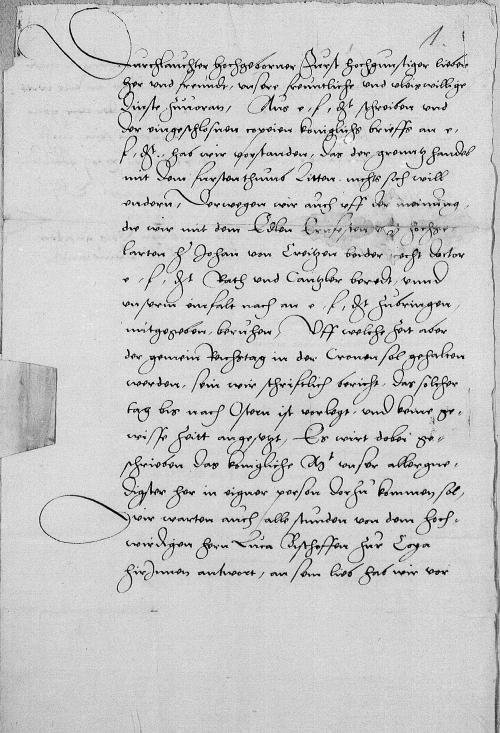 1.
Durchlauchter Hochgeborner Furst hochgunstiger lieber
her und freundt, unsere freuntliche und vleiswillige
dinste zuvoran, Aus e. f. dt schreiben und
der eingeschlosnen copeien koniglichs brieffs an e.
f. dt. hab wir vorstanden, das der grenitz handel
mit dem furstenthumb Litten nichts sich will
endern, Derwegen wir auch uff der meinung
die wir mit dem Edlen Ernfesten und hochge-
larten h Johan von Creitzen beider recht doctor
e. f. dt Rath und Cantzler beredt, und
unserm einfalt nach an e. f. dt zubringen,
mitgegeben, beruhen, Uff welche zeit aber
der gemein Reichstag in der Cronen sol gehalten
werden, sein wir schriftlich bericht, das solcher
tag bis nach Ostern ist vorlegt, und keine ge-
wisse zeitt angesetzt, Es wirt dobei ge-
schrieben das konigliche Mt unser allergne-
digster her in eigner person dorzu kommen sol,
wir warten auch alle stunden von dem hoch-
wirdigen hern Luca Bischoffen zur Coya
hirinnen antwort, an sein lieb hab wir vor